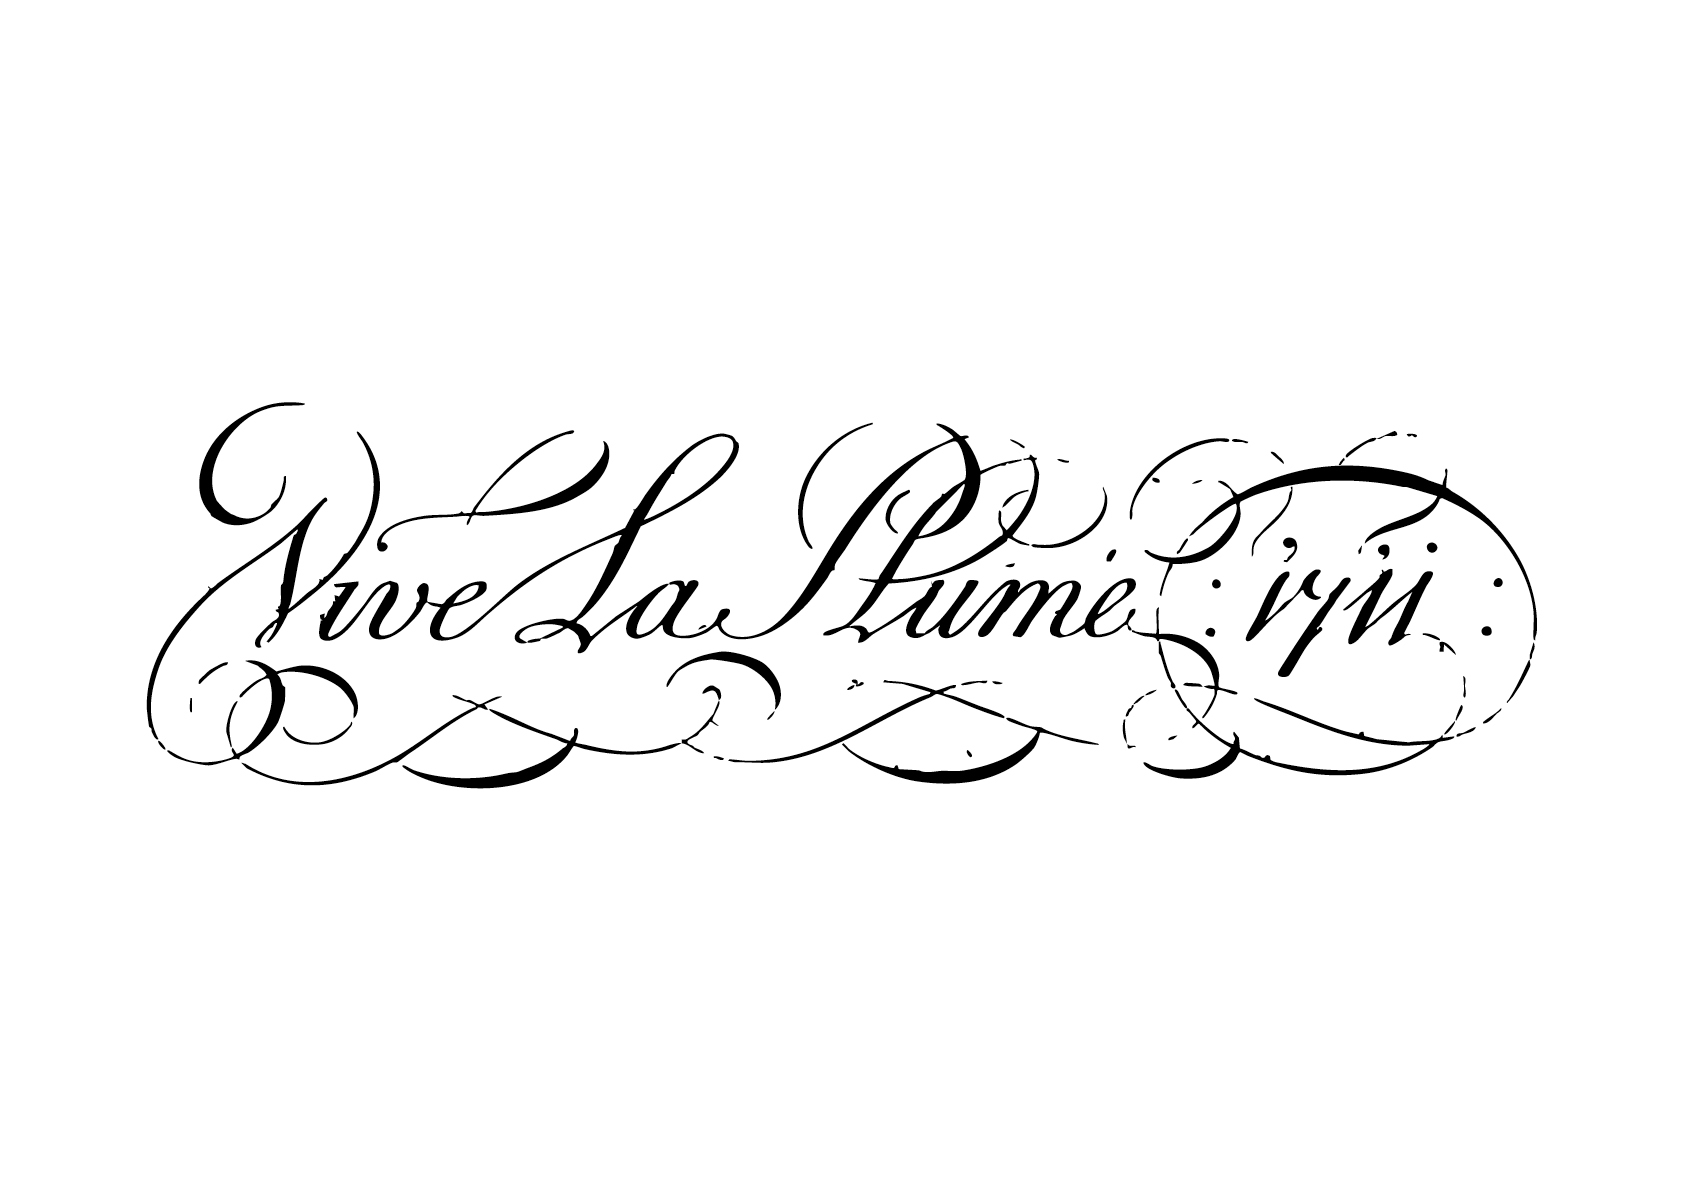 Vive La Plume : 1711 :